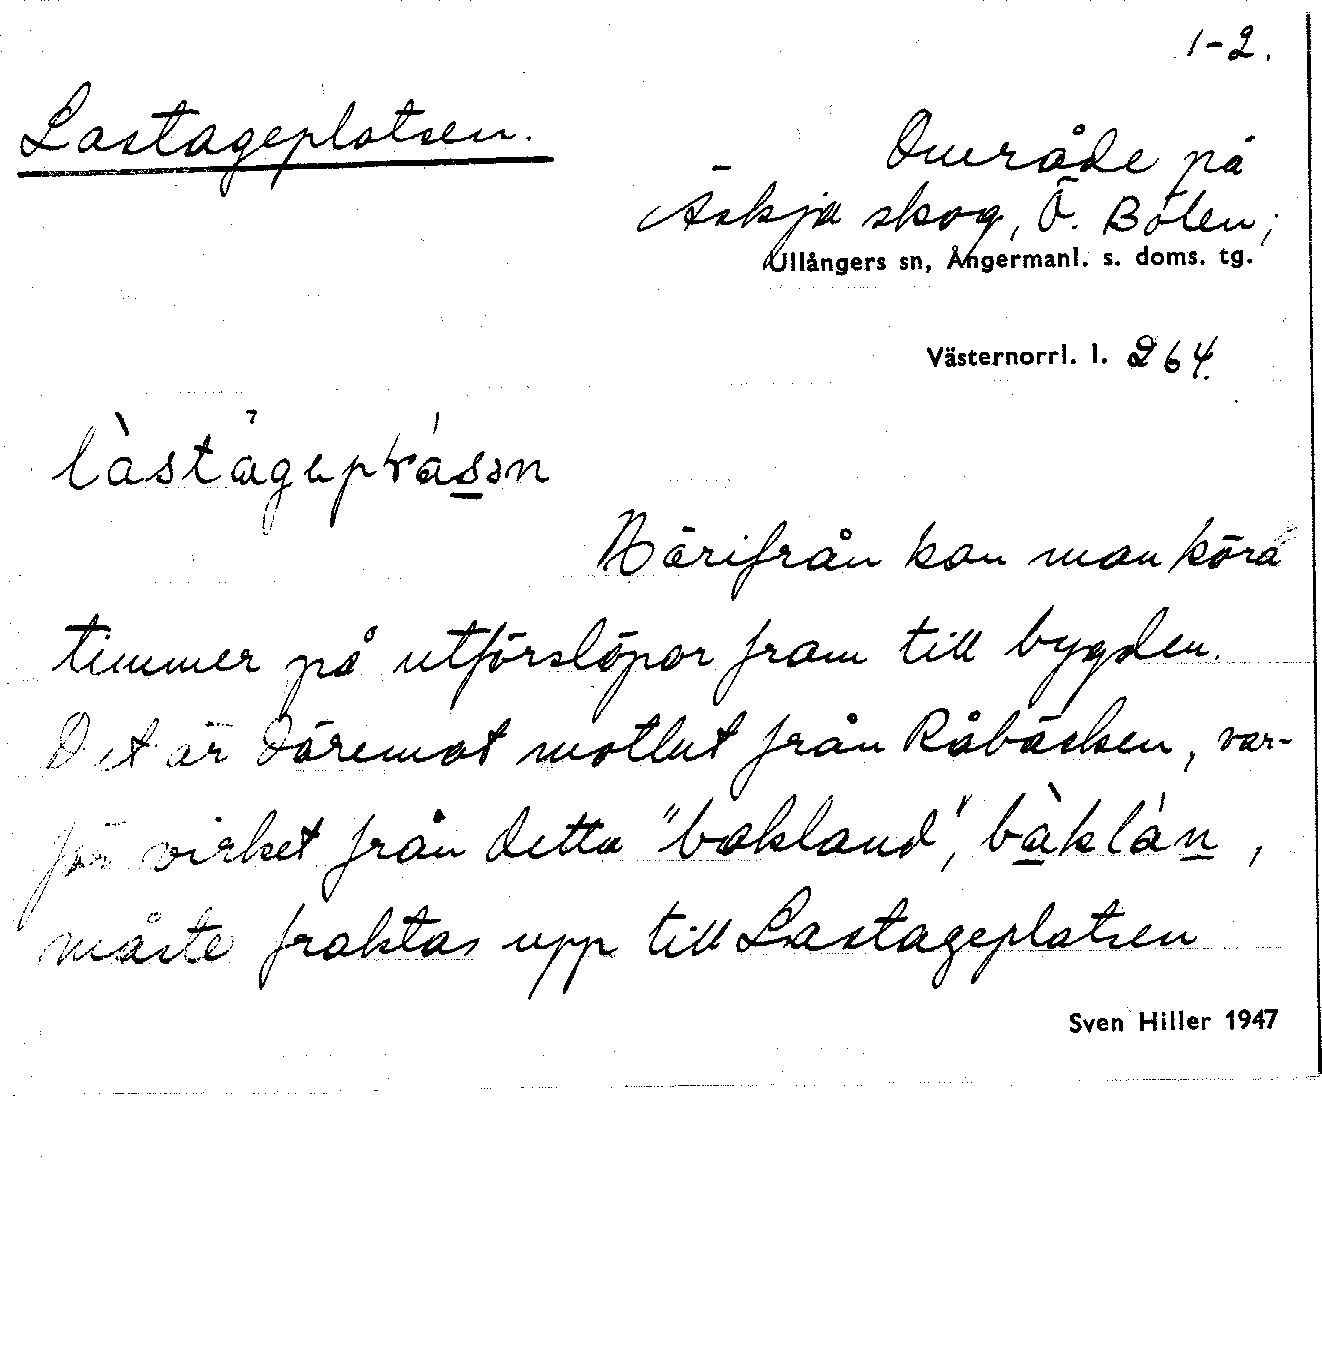 1-2.
Lastageplatsen.
Område på
Äskja skog, Ö. Bölen;
Ullångers sn, Ångermanl. s. doms. tg.
Västernorrl. l. 264.
Härifrån kan man köra
timmer på utförslöpor fram till bygden.
Det är däremot motlut från Råbäcken, var-
för virket från detta "bakland", bàklán,
måste fraktas upp till Lastageplatsen
Sven Hiller 1947